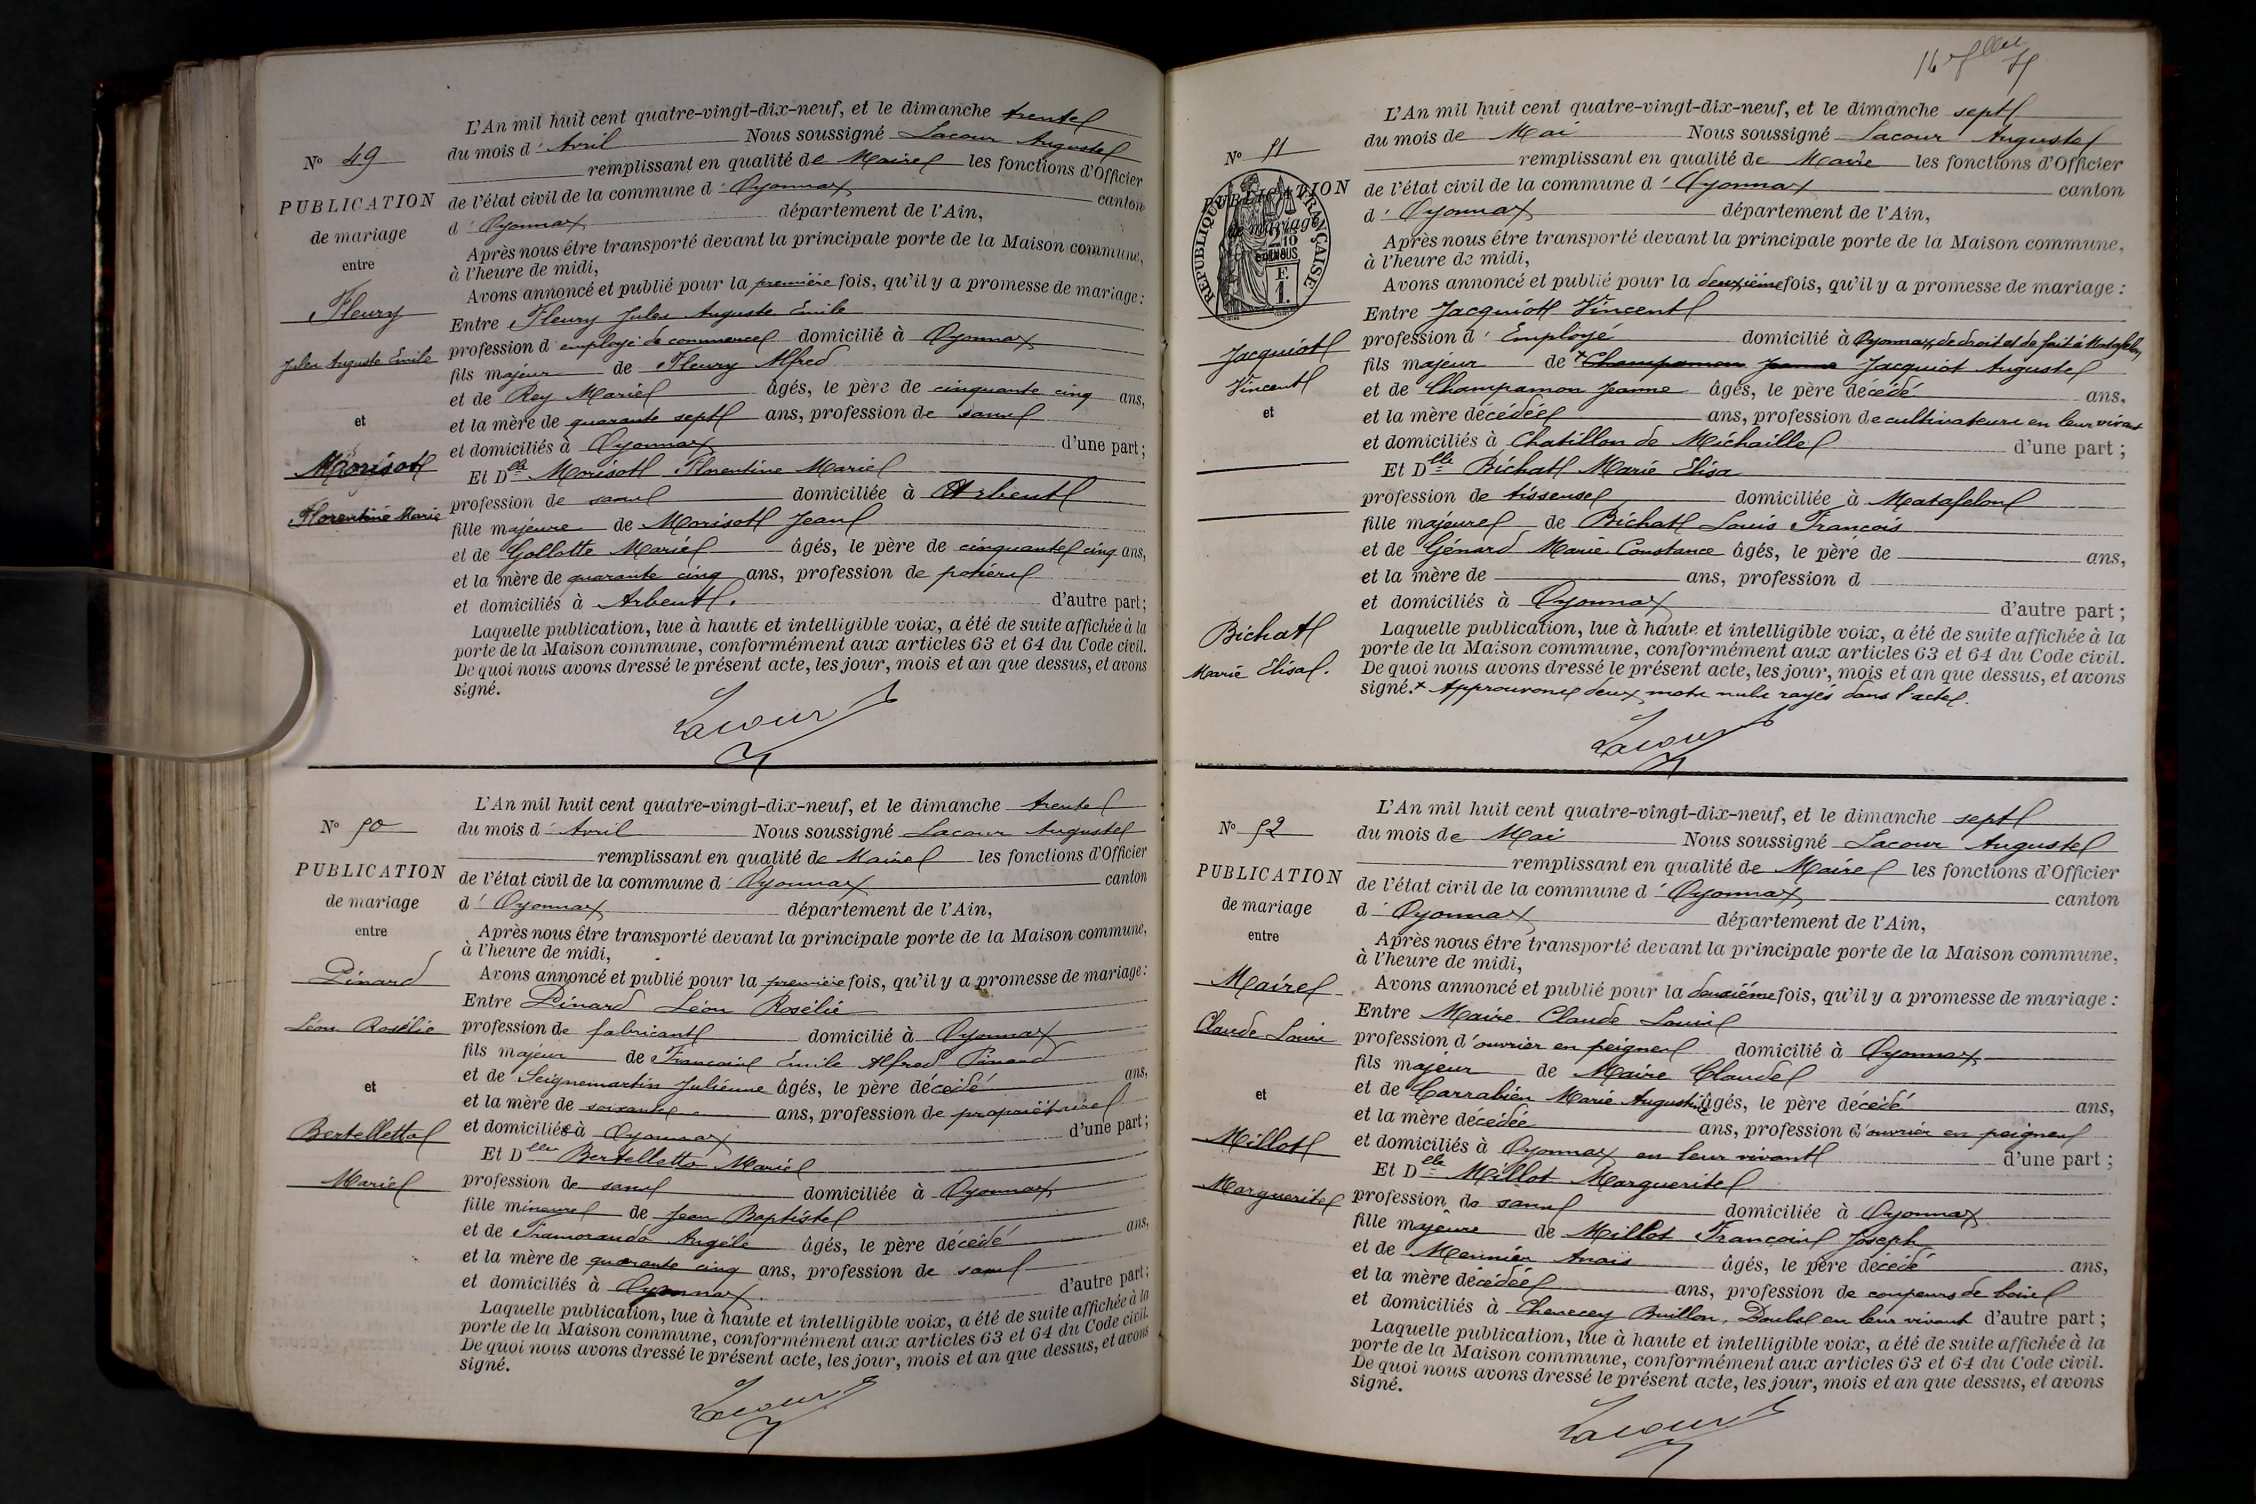 N° 49
PUBLICATION
de mariage
entre
Fleury
Jules Auguste Emile
et
Morisot
Florentine Marie
L'An mil huit cent quatre-vingt-dix-neuf, et le dimanche trente
du mois d'Avril Nous soussigné Lacour Auguste
remplissant en qualité de Maire les fonctions d'Officier
de l'état civil de la commune d'Oyonnax canton
d'Oyonnax département de l'Ain,
Après nous être transporté devant la principale porte de la Maison commune,
à l'heure de midi,
Avons annoncé et publié pour la première fois, qu'il y a promesse de mariage :
Entre Fleury Jules Auguste Emile
profession d'employé de commerce domicilié à Oyonnax
fils majeur de Fleury Alfred
et de Rey Marie âgés, le père de cinquante cinq ans,
et la mère de quarante sept ans, profession de sans
et domiciliés à Oyonnax d'une part ;
Et Dlle Morisot Florentine Marie
profession de sans domiciliée à Arbent
fille majeure de Morisot Jean
et de Gollette Marie âgés, le père de cinquante cinq ans,
et la mère de quarante cinq ans, profession de potiers
et domiciliés à Arbent. d'autre part ;
Laquelle publication, lue à haute et intelligible voix, a été de suite affichée à la
porte de la Maison commune, conformément aux articles 63 et 64 du Code civil.
De quoi nous avons dressé le présent acte, les jour, mois et an que dessus, et avons
signé.
Lacour
N° 50
PUBLICATION
de mariage
entre
Pinard
Léon Rosélie
et
Bertelletto
Marie
L'An mil huit cent quatre-vingt-dix-neuf, et le dimanche trente
du mois d'Avril Nous soussigné Lacour Auguste
remplissant en qualité de Maire les fonctions d'Officier
de l'état civil de la commune d'Oyonnax canton
d'Oyonnax département de l'Ain,
Après nous être transporté devant la principale porte de la Maison commune,
à l'heure de midi,
Avons annoncé et publié pour la première fois, qu'il y a promesse de mariage :
Entre Pinard Léon Rosélie
profession de fabricant domicilié à Oyonnax
fils majeur de François Emile Alfred Pinard
et de Seignemartin Julienne âgés, le père décédé ans,
et la mère de soixante ans, profession de propriétaire
et domiciliés à Oyonnax d'une part ;
Et Dlle Bertelletto Marie
profession de sans domiciliée à Oyonnax
fille mineure de Jean Baptiste
et de Tramorando Angèle âgés, le père décédé ans,
et la mère de quarante cinq ans, profession de sans
et domiciliés à Oyonnax. d'autre part ;
Laquelle publication, lue à haute et intelligible voix, a été de suite affichée à la
porte de la Maison commune, conformément aux articles 63 et 64 du Code civil.
De quoi nous avons dressé le présent acte, les jour, mois et an que dessus, et avons
signé.
Lacour
N° 51
PUBLICATION
de mariage
RÉPUBLIQUE FRANÇAISE
2/10
EN SUS
F.
1.
Jacquiot
Vincent
et
Bichat
Marie Elisa.
L'An mil huit cent quatre-vingt-dix-neuf, et le dimanche sept
du mois de Mai Nous soussigné Lacour Auguste
remplissant en qualité de Maire les fonctions d'Officier
de l'état civil de la commune d'Oyonnax canton
d'Oyonnax département de l'Ain,
Après nous être transporté devant la principale porte de la Maison commune,
à l'heure de midi,
Avons annoncé et publié pour la deuxième fois, qu'il y a promesse de mariage :
Entre Jacquiot Vincent
profession d'Employé domicilié à Oyonnax, de droit et de fait à Matafelon
fils majeur de + Champamon Jeanne Jacquiot Auguste
et de Champamon Jeanne âgés, le père décédé ans,
et la mère décédée ans, profession de cultivateurs en leur vivant
et domiciliés à Chatillon de Michaille d'une part ;
Et Dlle Bichat Marie Elisa
profession de tisseuse domiciliée à Matafelon
fille majeure de Bichat Louis François
et de Génard Marie Constance âgés, le père de ans,
et la mère de ans, profession d
et domiciliés à Oyonnax d'autre part ;
Laquelle publication, lue à haute et intelligible voix, a été de suite affichée à la
porte de la Maison commune, conformément aux articles 63 et 64 du Code civil.
De quoi nous avons dressé le présent acte, les jour, mois et an que dessus, et avons
signé. + Approuvons deux mots nuls rayés dans l'acte.
Lacour
N° 52
PUBLICATION
de mariage
entre
Maire
Claude Louis
et
Millot
Marguerite
L'An mil huit cent quatre-vingt-dix-neuf, et le dimanche sept
du mois de Mai Nous soussigné Lacour Auguste
remplissant en qualité de Maire les fonctions d'Officier
de l'état civil de la commune d'Oyonnax canton
d'Oyonnax département de l'Ain,
Après nous être transporté devant la principale porte de la Maison commune,
à l'heure de midi,
Avons annoncé et publié pour la deuxième fois, qu'il y a promesse de mariage :
Entre Maire Claude Louis
profession d'ouvrier en peignes domicilié à Oyonnax
fils majeur de Maire Claude
et de Carrabien Marie Augustine âgés, le père décédé ans,
et la mère décédée ans, profession d'ouvrier en peignes
et domiciliés à Oyonnax en leur vivant d'une part ;
Et Dlle Millot Marguerite
profession de sans domiciliée à Oyonnax
fille majeure de Millot François Joseph
et de Meunier Anaïs âgés, le père décédé ans,
et la mère décédée ans, profession de coupeurs de bois
et domiciliés à Chenecey Buillon, Doubs en leur vivant d'autre part ;
Laquelle publication, lue à haute et intelligible voix, a été de suite affichée à la
porte de la Maison commune, conformément aux articles 63 et 64 du Code civil.
De quoi nous avons dressé le présent acte, les jour, mois et an que dessus, et avons
signé.
Lacour